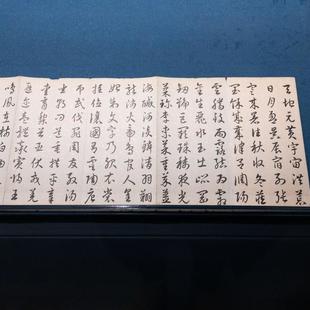 天地元黄宇宙洪荒
日月盈昃辰宿列張
寒来暑往秋收冬蔵
閏餘成歲律吕調陽
雲騰致雨露結為霜
金生麗水玉出崑岡
劍號巨闕珠稱夜光
菓珍李柰菜重芥薑
海鹹河淡鱗潛羽翔
龍師火帝鳥官人皇
始制文字乃服衣裳
推位讓國有虞陶唐
弔民伐罪周發殷湯
坐朝問道垂拱平章
愛育黎首臣伏戎羌
遐邇壹體率賓歸王
鳴鳳在樹白駒